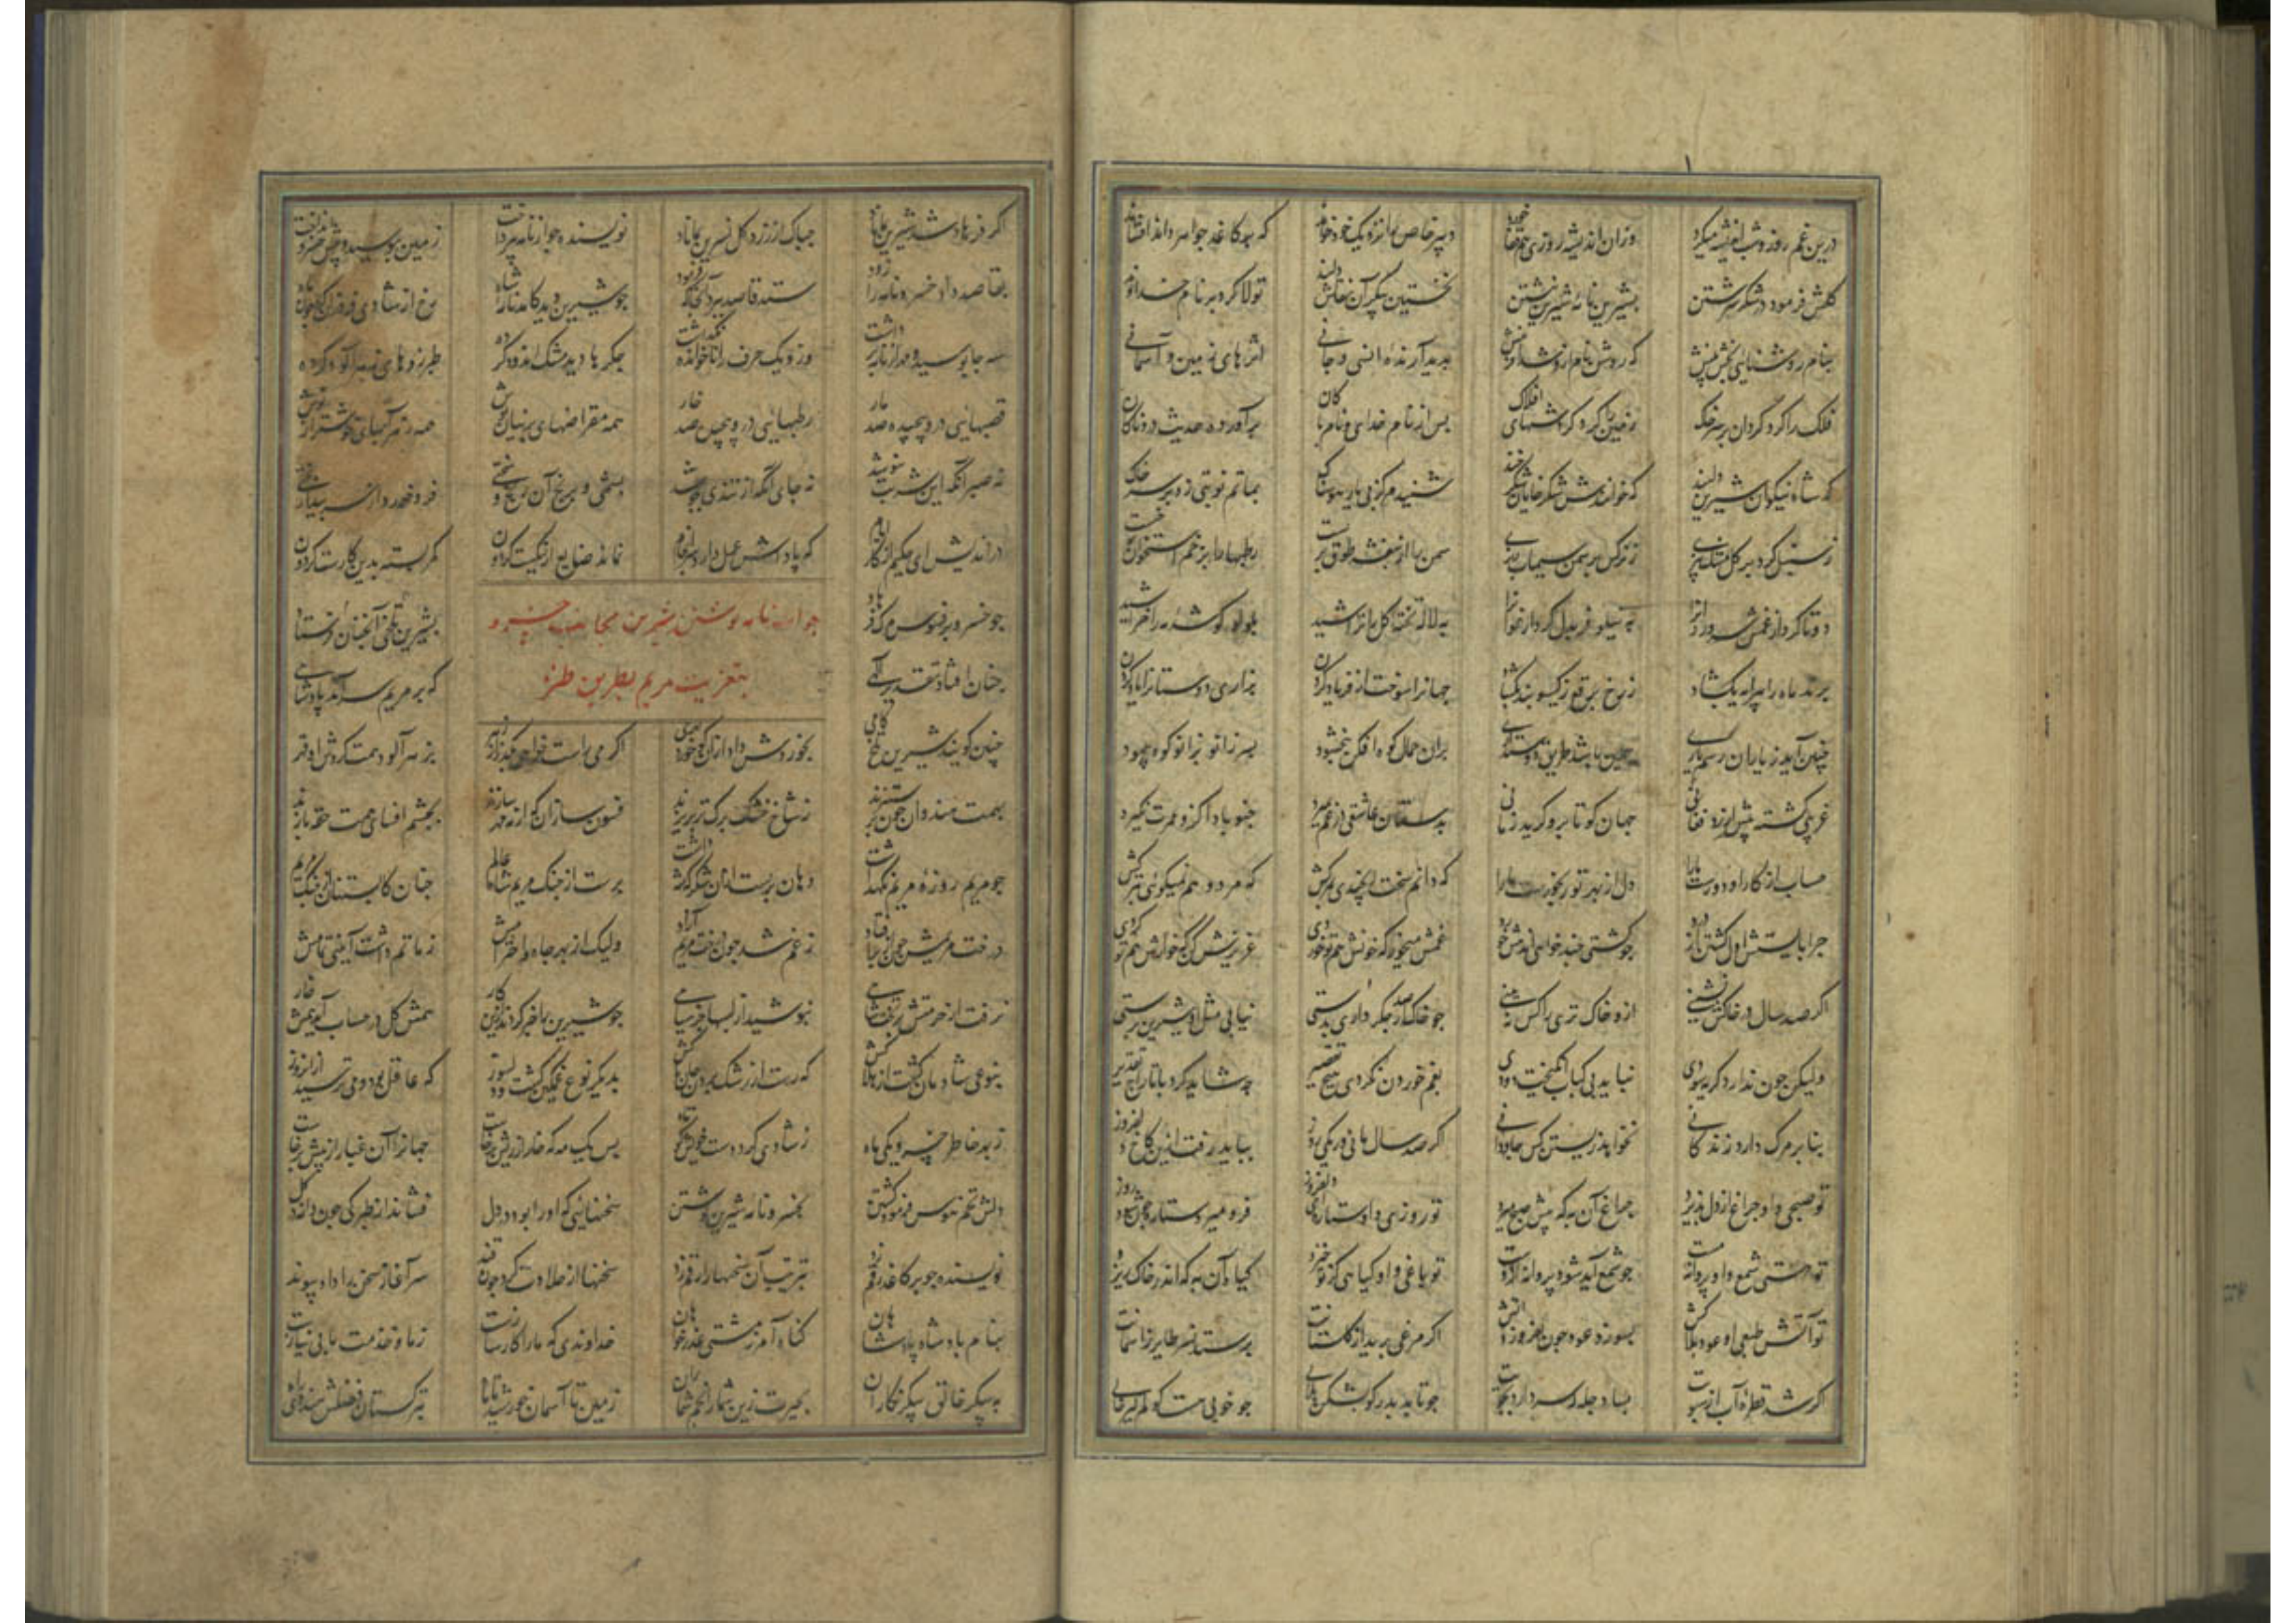 درین غم روز و شب اندیشه میکرد وزان اندیشه روزی هم قفا خورد دبیر خاص را نزدیک خود خواند که بر کاغذ جواهر داند افشاند
کلش فرمود در شکر سرشتن بشیرین نامه شیرین نبشتن نخستین پیکر آن نقش دلبند تولا کرد بر نام خداوند
بنام روشنائی بخش بینش که روشن نام ازو شد آفرینش پدید آرنده انسی و جانی اثرهای زمین و آسمانی
فلک را کرد گردان بر سر خاک زمین را کرد گردشهای افلاک پس از نام خدای و نام پاکان برآورده حدیث دردناکان
که شاه نیکوان شیرین دلبند که خوانندش شکرخایان شکرخند شنیدم کز پی یار هوسناک بماتم نوبتی زد بر سر خاک
ز سنبل کرد بر گل مشک بیزی ز نرگس بر سمن سیماب ریزی سمن را از بنفشه طوق بر بست رطبها را بزخم استخوان خست
دوتا کرد از غمش سرو روان را به نیلوفر بدل کرد ارغوان را به لاله تخته گل را تراشید بلولو گوشه مه را خراشید
پرند ماه را پیرایه بگشاد ز رخ برقع ز گیسو بند بگشاد جهانرا سوخت از فریاد کردن بزاری دوستانرا یاد کردن
چنین آید ز یاران رسم یاری چنین باشد طریق دوستداری بران حمال کوه افکن ببخشود بسر زانو بزانو کوه پیمود
غریبی کشته بیش ارزد فغانی جهان گو تا برو گرید زمانی بدستان عاشقی از غم بمیرد چنو باد آکه زو عبرت نگیرد
حساب از کار او دورست ما را دل از بهر تو رنجورست ما را که دانم سخت رنجیدی بمرگش که مرد و هم نمیگوئی بترکش
چرا بایستش اول کشتن از درد چو کشتی چند خواهی اندهش خورد غمش میخور که خونش هم تو خوردی عزیزش کن که خوارش هم تو کردی
اگر صد سال در خاکش نشینی ازو خاکی تری را کس نبینی چو خاک ار صد جگر داری بدستی نیابی مثل او شیرین پرستی
ولیکن چون ندارد گریه سودی نیاید بی کباب انگیخت دودی بغم خوردن نکردی هیچ تقصیر چه شاید کرد با تاراج تقدیر
بنا بر مرگ دارد زندگانی نخواهد زیستن کس جاودانی گر صد سال مانی ور یکی روز بباید رفت ازین کاخ دلفروز
تو صبحی و او چراغ از دل پذیرد چراغ آن به که پیش صبح میرد تو روزی و او ستاره ای دلفروز فرو میرد ستاره چون شود روز
تو هستی شمع و او پروانه مست چو شمع آید شود پروانه از دست تو باغی و او گیاهی کز تو خیزد گیاه آن به که اندر خاک ریزد
تو آتش طبعی او عود بلاکش بسوزد عود چون افروزد آتش اگر مرغی پرید از گلستانت پرستد نسر طایر ز آسمانت
اگر شد قطره آب از سبویت بسا دجله که سر دارد بجویت چو ماند بدر گو بشکن هلالی چو خوبی هست گو کم گیر خالی
اگر فرهاد شد شیرین بماناد چه باک از زرد گل نسرین بماناد نویسنده چو از نامه بپرداخت زمین بوسید و پیش خسرو انداخت
بقاصد داد خسرو نامه را زود ستد قاصد ببرد آنجا که فرمود چو شیرین دید کامد نامه شاه رخ از شادی فروزان کرد چون ماه
سه جا بوسید و مهر از نامه برداشت وزو یک حرف را ناخوانده نگذاشت جگرها دید مشک اندود کرده طبرزدهای زهرآلود کرده
قصبهائی درو پیچیده صد مار رطبهائی درو پیچیده صد خار همه مقراضهای پرنیان پوش همه زهرآبهای خوشتر از نوش
نه صبر آنکه این شربت بنوشد نه جای آنکه از تندی بجوشد بسختی و برنج آن رنج و سختی فرو خورد از سر بیداربختی
در اندیش ای حکیم از کار ایام که پاداش عمل دارد سرانجام نماند ضایع ار نیکست گر دون کمر بسته بدین کارست گردون
جواب نامه نوشتن شیرین بجانب خسرو
بتعزیت مریم بطریق طنز
چو خسرو بر فسوس مرگ فرهاد بشیرین تلخی آنچنان فرستاد
چنان افتاد تقدیر الهی که بر مریم سرآمد پادشاهی
چنین گویند شیرین تلخ کامی بخوردش داد از آن کو خورد اگر می راست خواهی بگذر از زهر بزهرآلود همت کردش او قهر
بهمت هندوان چون بر ستیزند ز شاخ خشک برگ تر بریزند فسون سازان که از مه مهره سازند بچشم افسای همت حقه بازند
چو مریم روزه مریم نگه داشت دهان بربست از آن شکر که شه داشت برست از چنگ مریم شاه عالم چنان کابستنان از چنگ مریم
درخت مریمش چون از بر افتاد ز غم شد چون درخت مریم آزاد ولیک از بهر جاه و احترامش ز ماتم داشت آئینی تمامش
نرفت از حرمتش بر تخت ماهی نپوشید از سلبها جز سیاهی چو شیرین را خبر کردند ازین کار همش گل در حساب آمد همش خار
بنوعی شادمان گشت از هلاکش که رست از رشک بردن جان پاکش بدیگر نوع غمگین گشت و دلسوز که عاقل بود و می ترسید از آن روز
ز بهر خاطر خسرو یکی ماه ز شادی کرد دست خویش کوتاه پس یک مه که خار از ریش برخاست جهانرا آن غبار از پیش برخاست
دلش تخم هوس فرمود کشتن بخسرو نامه شیرین نوشتن سخنهائی که او را بود در دل فشاند از طیرگی چون دانه در گل
نویسنده چو بر کاغذ رقم زد بترتیب آن سخنها را رقم زد سخنها از حلاوت کرد چون قند سرآغاز سخن را داد پیوند
بنام پادشاه پادشاهان گناه آمرز مشتی عذرخواهان خداوندی که مارا کارسازست ز ما و خدمت ما بی نیازست
نه پیکر خالق پیکرنگاران بحیرت زین شمار انجم شماران زمین تا آسمان خورشید تا ماه بترکستان فضلش هندوی راه